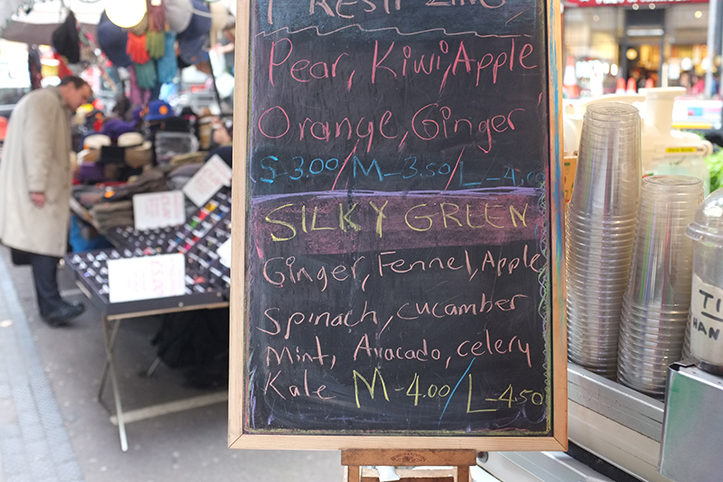 Pear, Kiwi, Apple
Orange, Ginger
S-3.00/M-3.50/L-4.00
SILKY GREEN
Ginger, Fennel, Apple
Spinach, cucamber
Mint, Avocado, celery
Kale M-4.00/L-4.50
TI